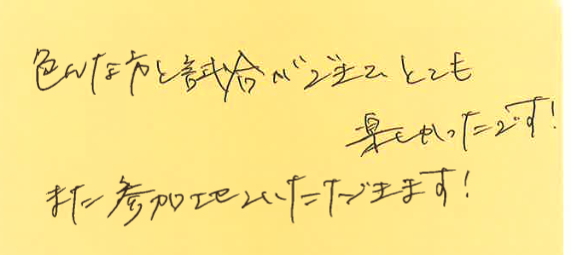 色んな方と試合ができて、とても
楽しかったです!
また参加させていただきます!